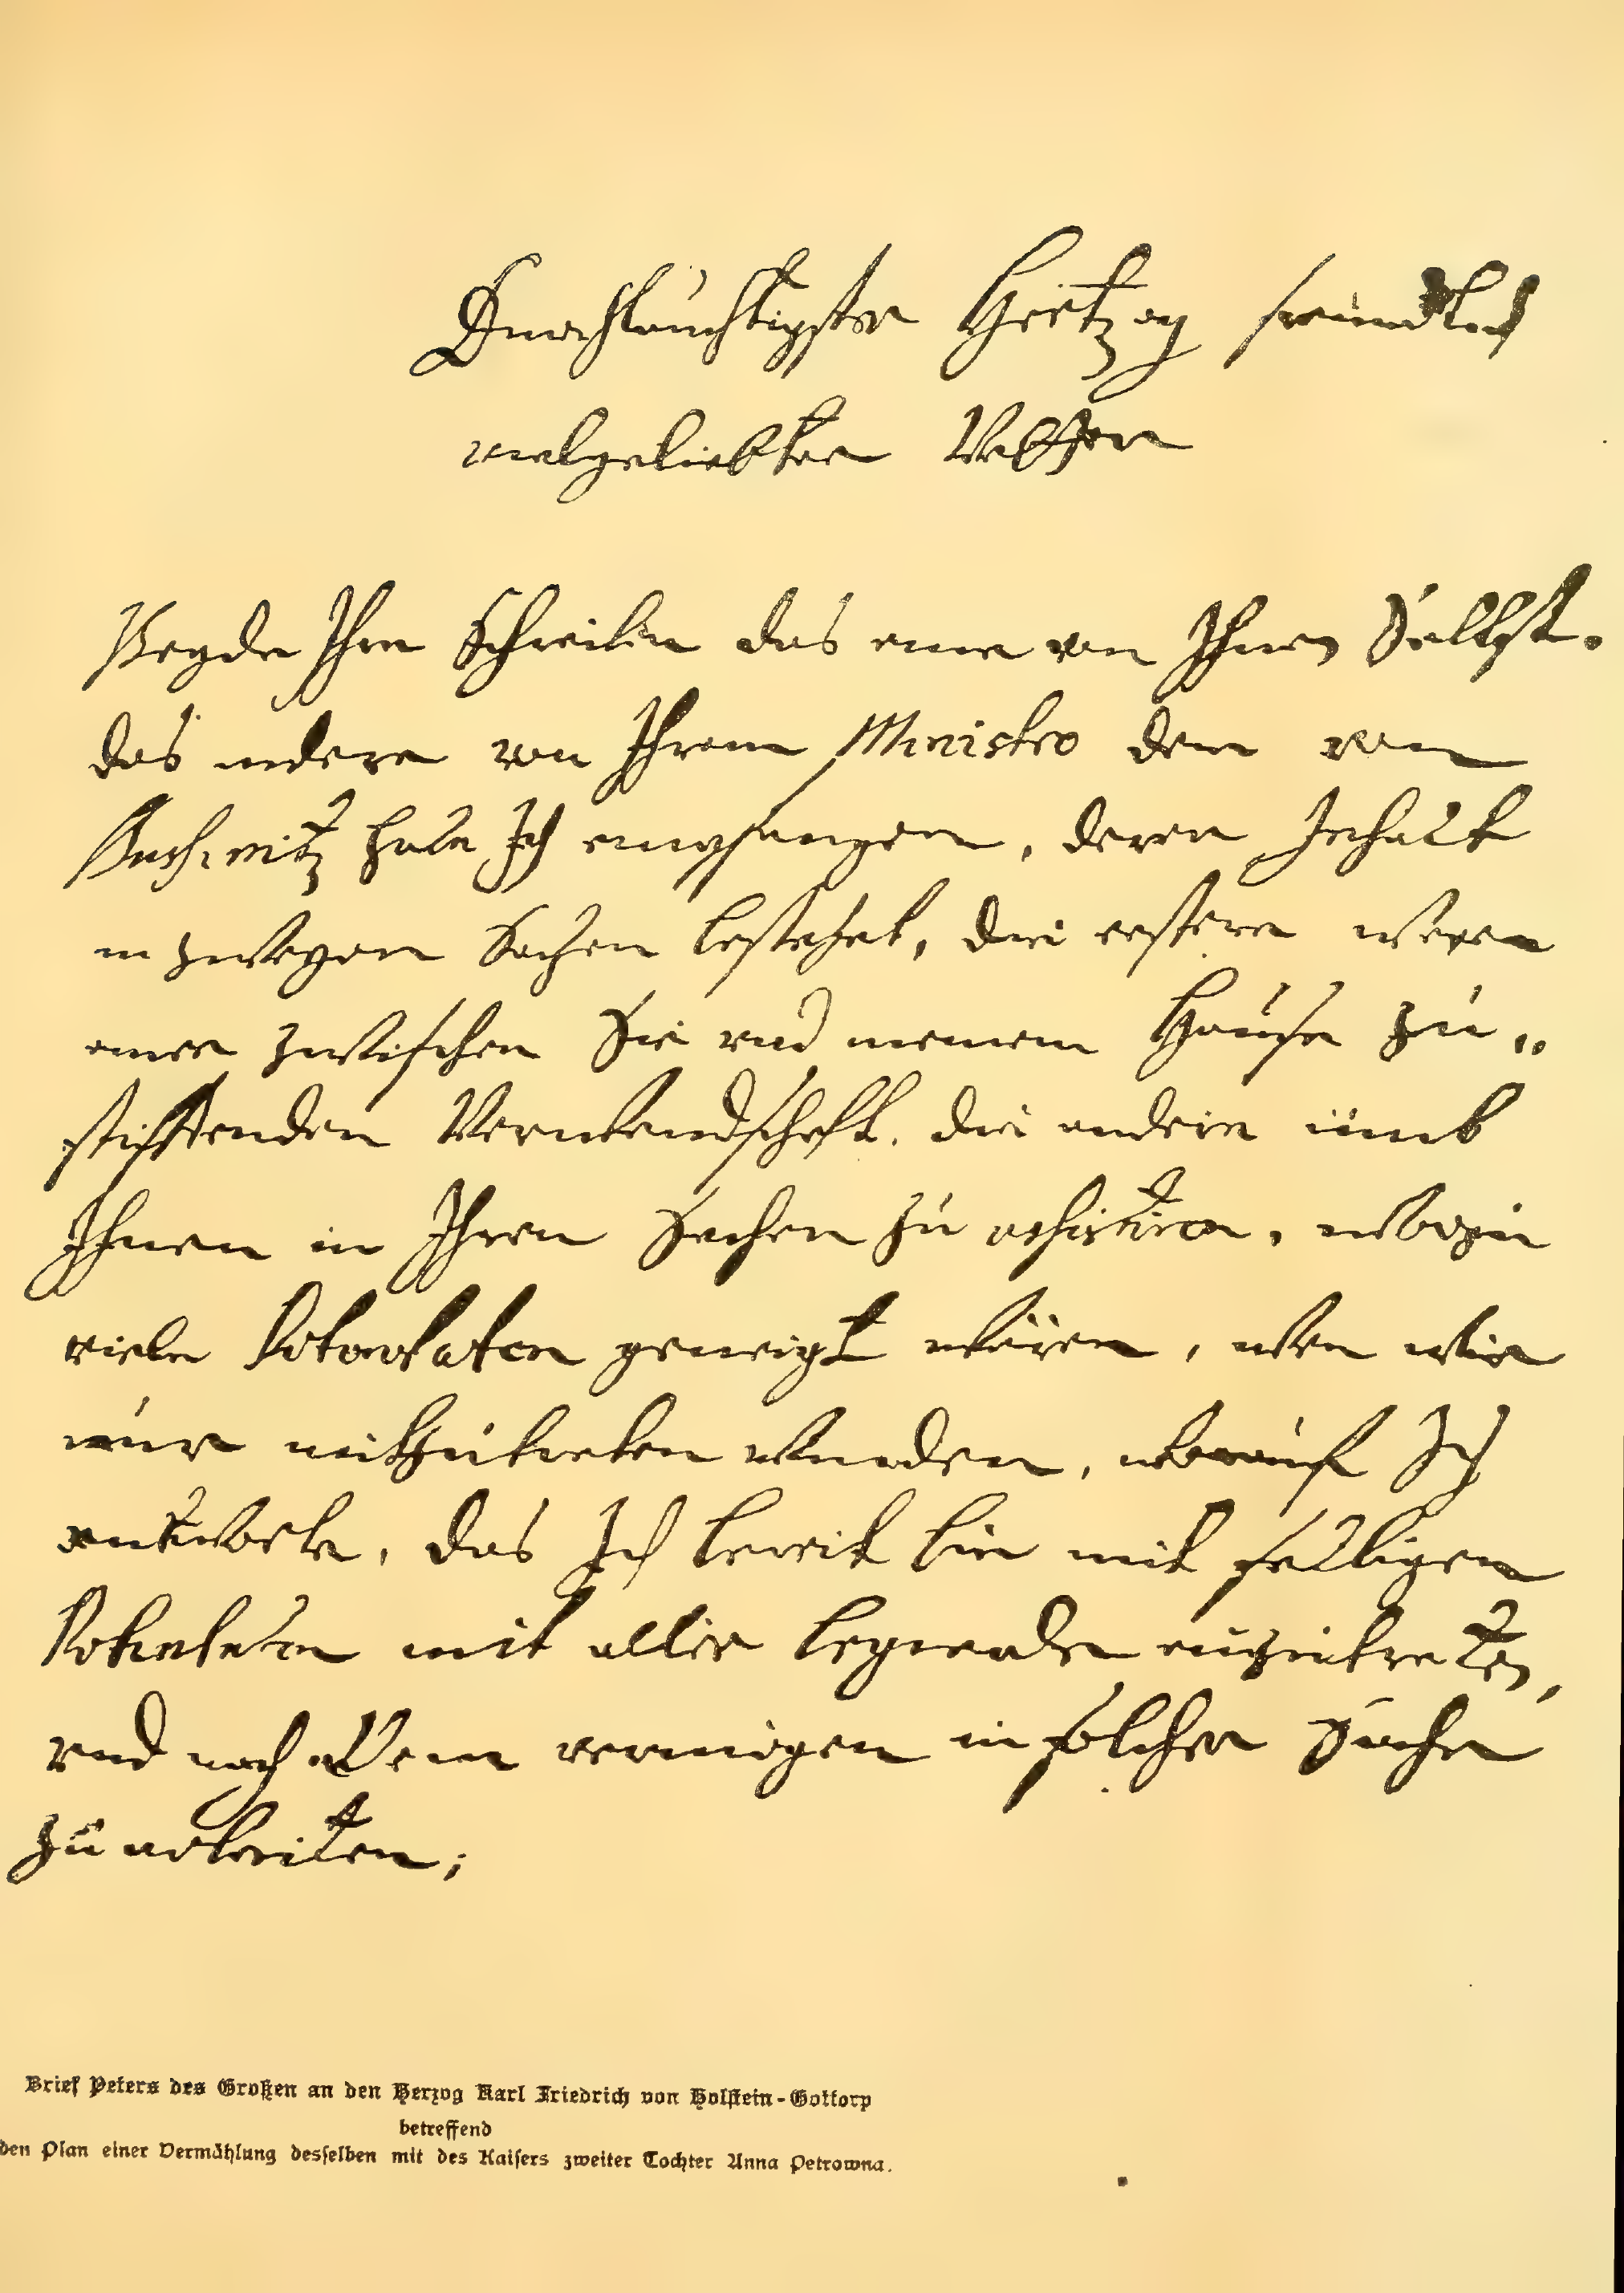 Durchläuchtigster Hertzog freundlich
vielgeliebter Vetter
Beyde Ihre Schreiben das eine von Ihnen Selbst.
das andere von Ihrem Ministro dem von
habe Ich empfangen, deren Inhalt
in zweyen Sachen bestehet, die erstere wegen
einer zwischen Sie und meinem Hause zu„
stifftenden Verwandschafft. die andere umb
Ihnen in Ihren Sachen zu assistiren, worzu
viele Potentaten geneigt wären, wen wir
nur mitzutreten wurden, worauf Ich
antworte, das Ich bereit bin mit selbigen
Potentaten mit allie begierde einzutreten,
und nach allem vermögen in solcher Sache
zu arbeiten;
Brief Peters des Großen an den Herzog Karl Friedrich von Holstein-Gottorp
betreffend
den Plan einer Vermählung desselben mit des Kaisers zweiter Tochter Anna Petrowna.